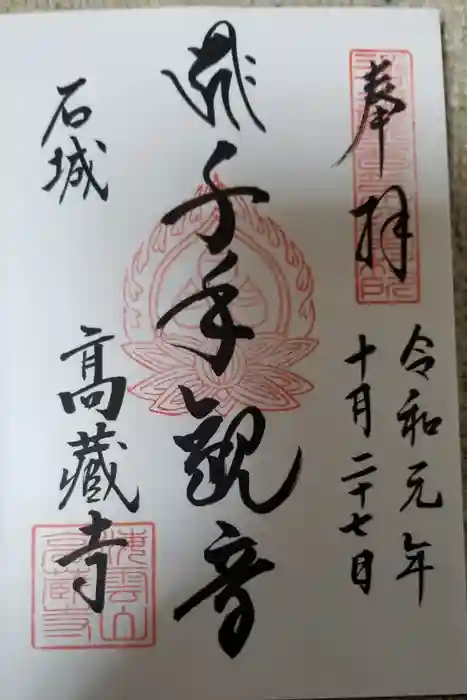 奉拝
令和元年
十月二十七日
千手觀音
石城
髙藏寺